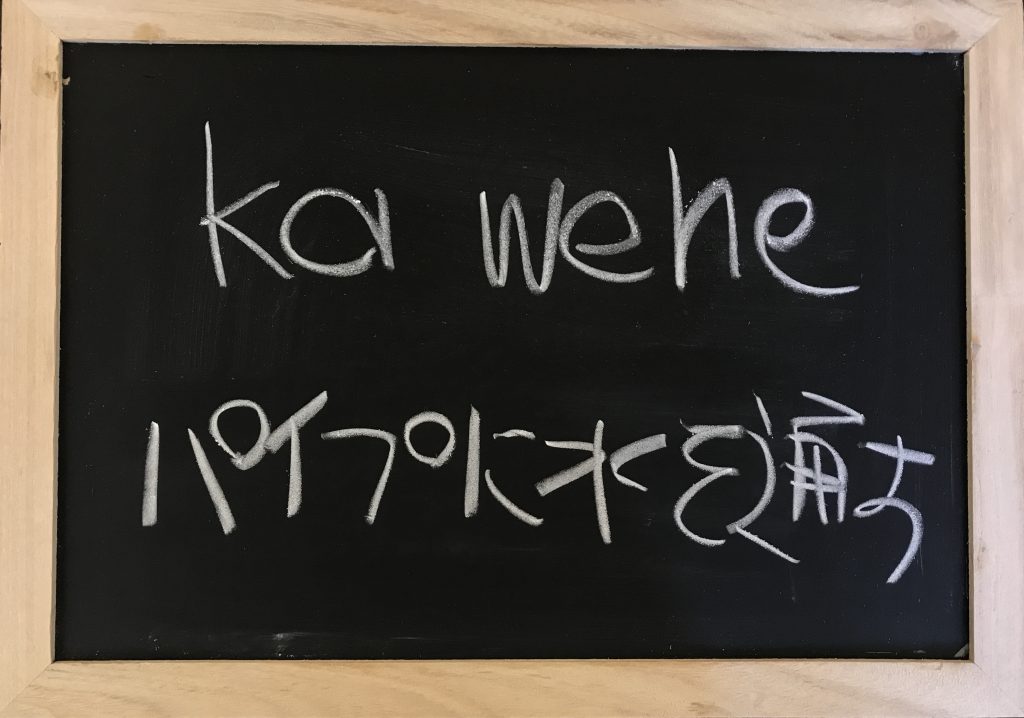 ka wehe
パイプに水を通す